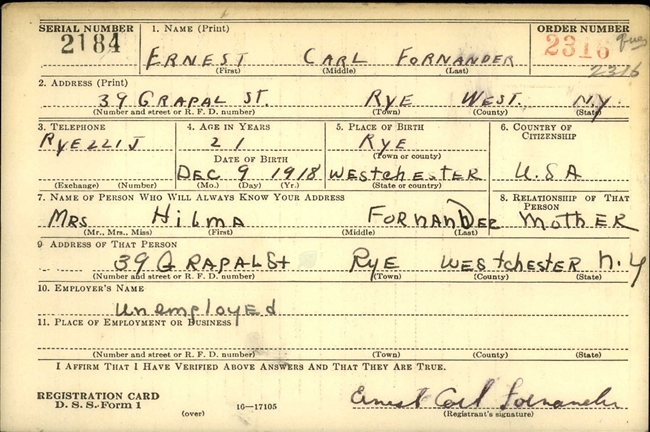 SERIAL NUMBER 1. NAME (Print) ORDER NUMBER
2184 ERNEST CARL FORNANDER 2316
(First) (Middle) (Last) 2316
2. ADDRESS (Print)
39 GRAPAL ST. RYE WEST. N.Y.
(Number and street or R. F. D. number) (Town) (County) (State)
3. TELEPHONE 4. AGE IN YEARS 5. PLACE OF BIRTH 6. COUNTRY OF CITIZENSHIP
21 RYE
DATE OF BIRTH (Town or county)
DEC 9 1918 WESTCHESTER U.S.A
(Exchange) (Number) (Mo.) (Day) (Yr.) (State or country)
7. NAME OF PERSON WHO WILL ALWAYS KNOW YOUR ADDRESS 8. RELATIONSHIP OF THAT PERSON
MRS HILMA FORNANDER MOTHER
(Mr., Mrs., Miss) (First) (Middle) (Last)
9. ADDRESS OF THAT PERSON
39 GRAPAL St RYE WESTCHESTER N.Y
(Number and street or R. F. D. number) (Town) (County) (State)
10. EMPLOYER'S NAME
unemployed
11. PLACE OF EMPLOYMENT OR BUSINESS
(Number and street or R. F. D. number) (Town) (County) (State)
I AFFIRM THAT I HAVE VERIFIED ABOVE ANSWERS AND THAT THEY ARE TRUE.
REGISTRATION CARD Ernest Carl Fornander
D. S. S. Form 1 16—17105 (Registrant's signature)
(over)